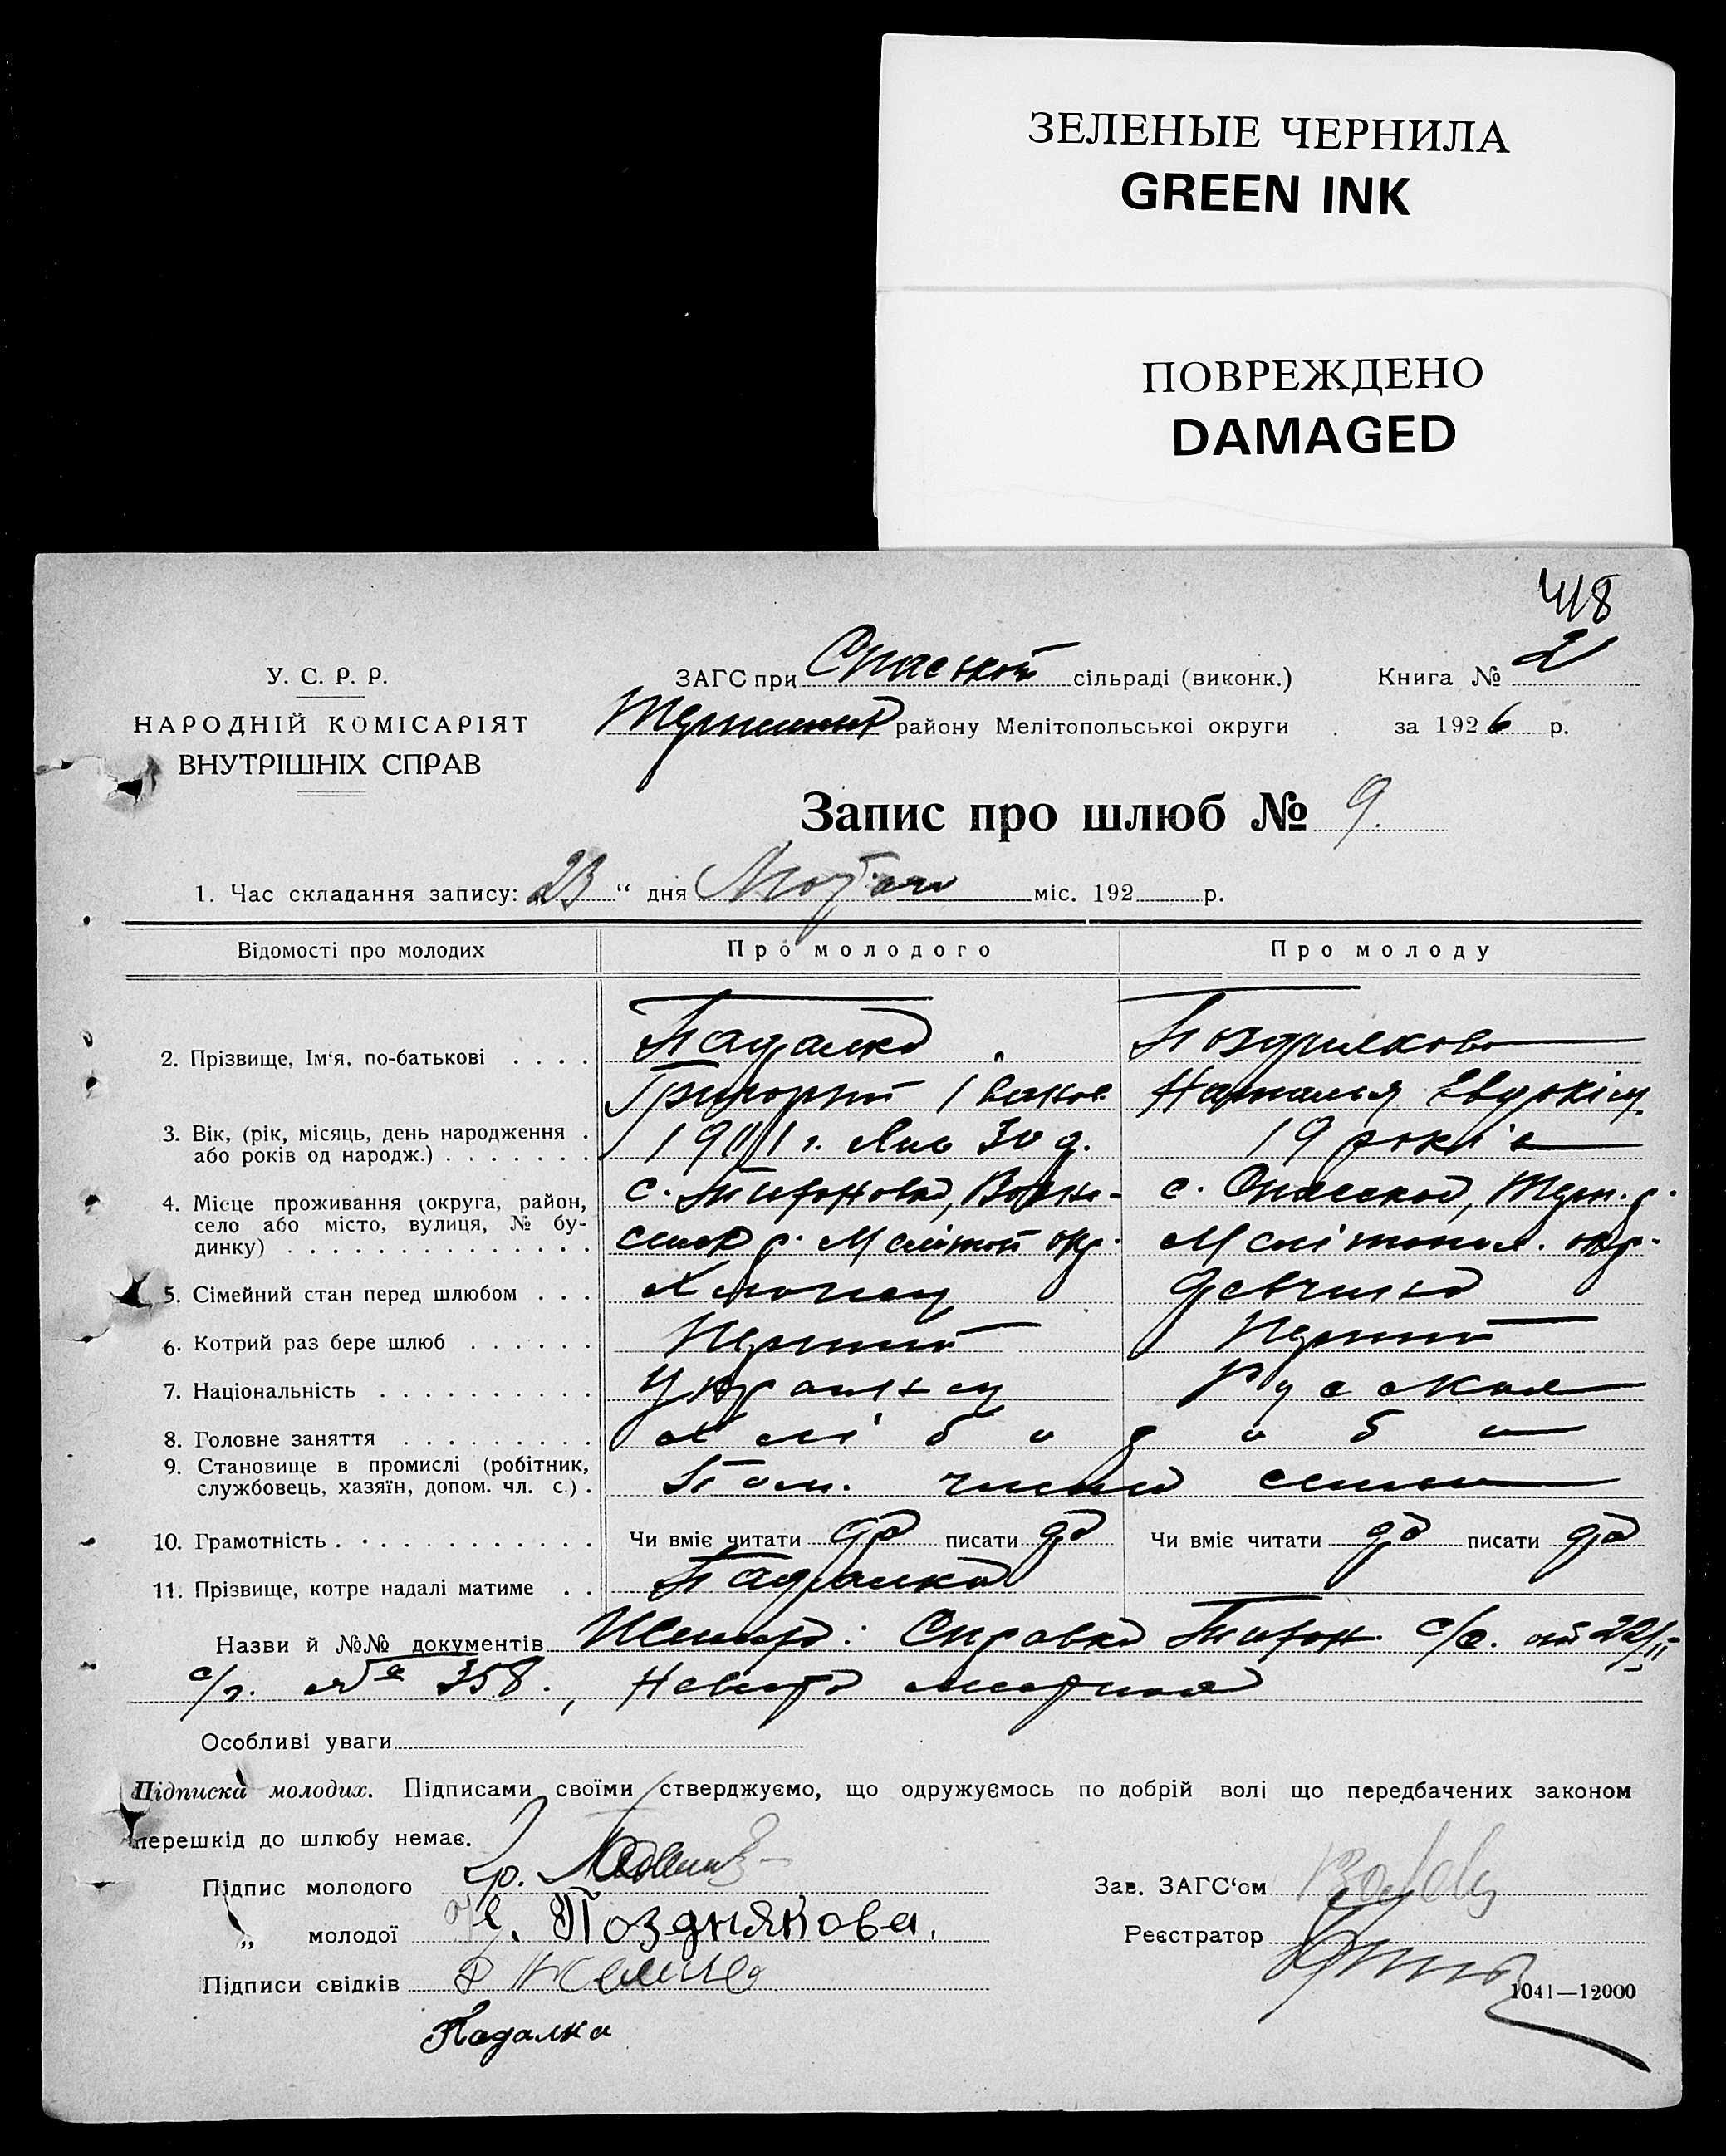 ЗЕЛЕНЫЕ ЧЕРНИЛА
GREEN INK
ПОВРЕЖДЕНО
DAMAGED
418
У. С. Р. Р.
НАРОДНІЙ КОМІСАРІЯТ
ВНУТРІШНІХ СПРАВ
ЗАГС при Спаской сільраді (виконк.)
району Мелітопольської округи
Книга № 2
за 1926 р.
Запис про шлюб № 9.
1. Час складання запису: 23 “ дня Лютого міс. 192 р.
Відомості про молодих
Про молодого
Про молоду
2. Прізвище, Ім‘я, по-батькові
Падалка
Григорий Іванов
Позднякова
Наталья Евдокім.
3. Вік, (рік, місяць, день народження
або років од народж.)
30 д.
19 років
4. Місце проживання (округа, район,
село або місто, вулиця, № бу-
динку)
с. Тифоновка, Возне-
сенск р. Меліпот окр.
с. Спасское, Терп. р.
Мелітопол. окр.
5. Сімейний стан перед шлюбом
Хлопец
Девчина
6. Котрий раз бере шлюб
Перший
Перший
7. Національність
Украінец
Русская
8. Головне заняття
Хлібороби
9. Становище в промислі (робітник,
службовець, хазяїн, допом. чл. с.)
Пом. члены семьи
10. Грамотність
Чи вміє читати да писати да
Чи вміє читати да писати да
11. Прізвище, котре надалі матиме
Падалка
Назви й №№ документів Жениха: Справка Тифон. с/с. от 22/II
с/г. № 358., Невеста
Особливі уваги
Підписка молодих. Підписами своїми стверджуємо, що одружуємось по добрій волі що передбачених законом
перешкід до шлюбу немає.
Підпис молодого Гр.
„ молодої Н. Позднякова.
Підписи свідків
Падалка
Зав. ЗАГС‘ом
Реєстратор
1041—12000